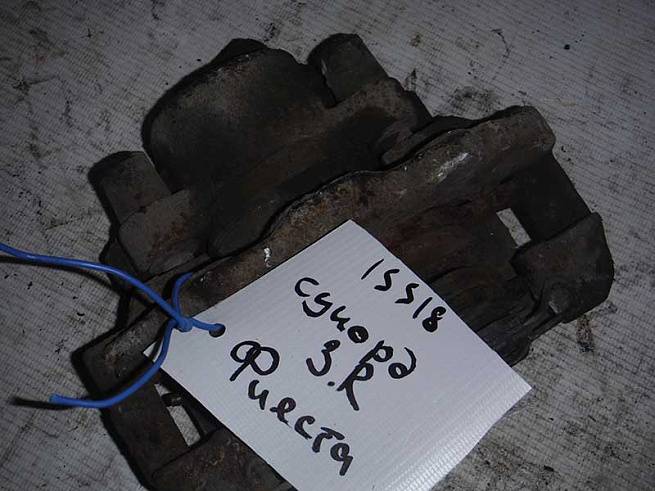 15518
супорд
З.R
Фиеста